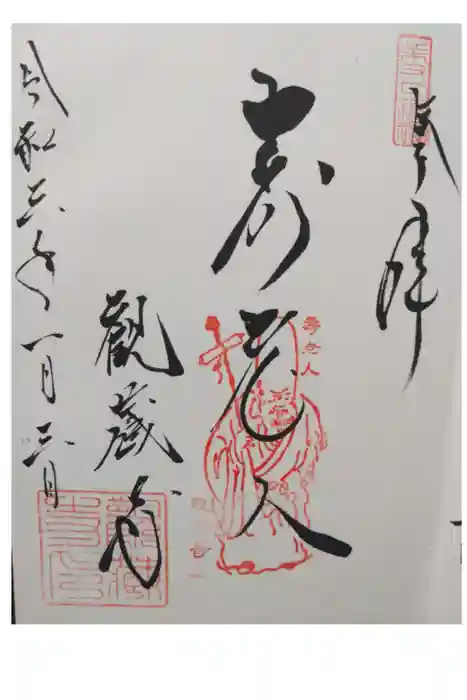 奉拝
寿老人
寿老人
観蔵寺
令和六年一月三日